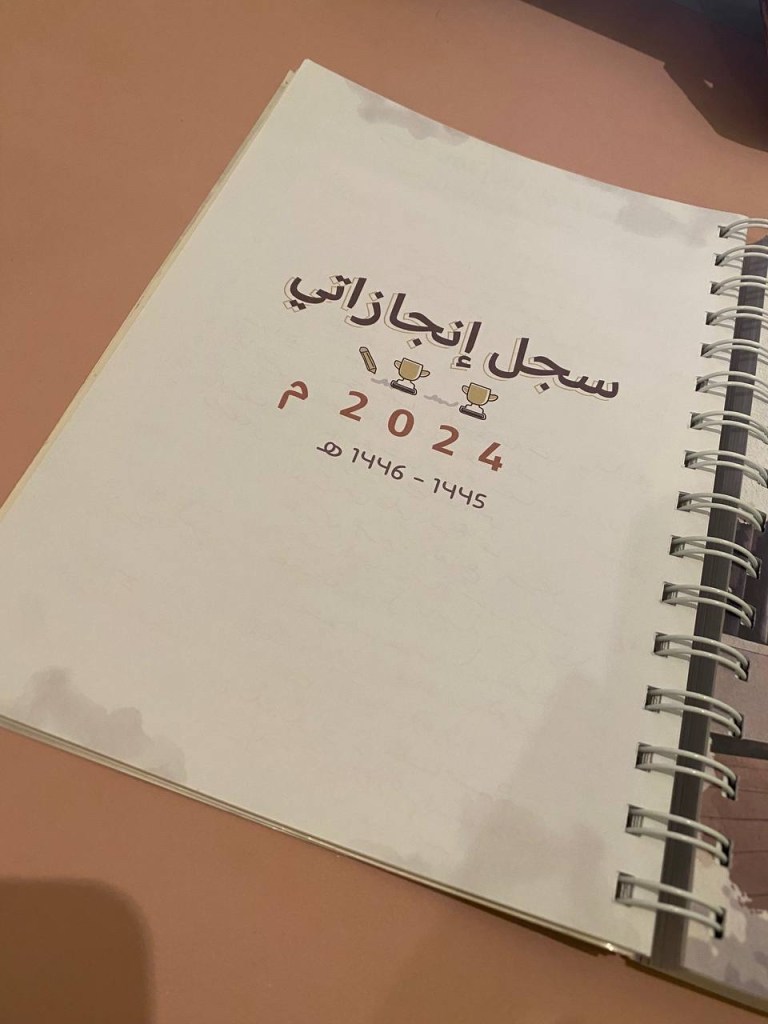 سجل إنجازاتي
2024 م
1445 - 1446 هـ